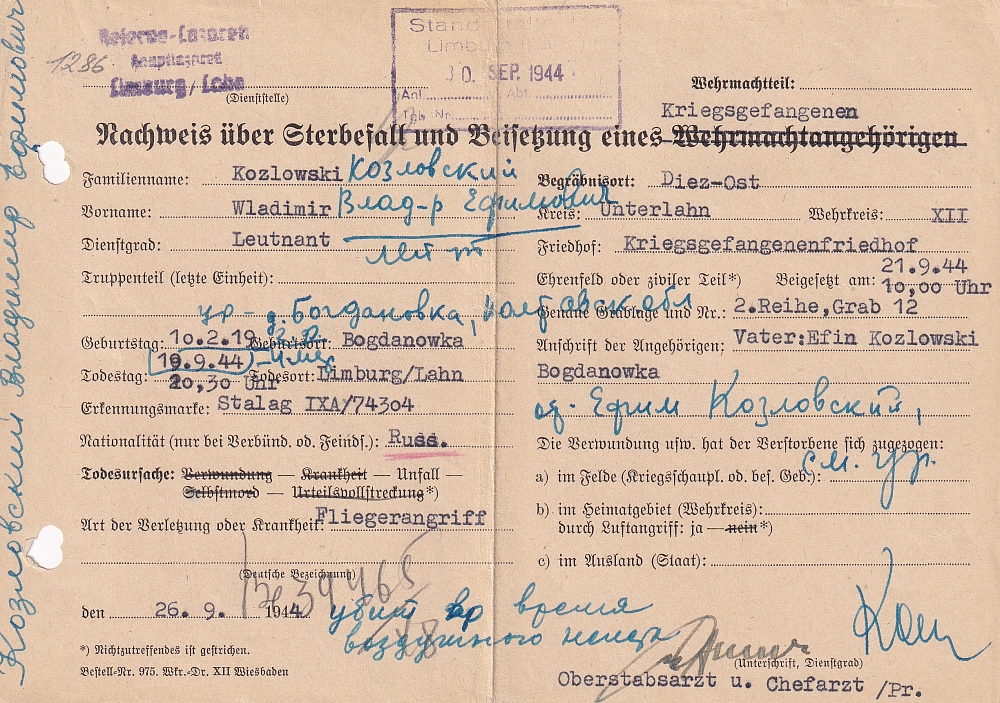 Reserve-Lazarett
Hauptlazarett
Limburg/Lahn
1286
(Dienststelle)
30. SEP. 1944
Anl. Abt.
Tgb. Nr.
Wehrmachtteil:
Kriegsgefangenen
Nachweis über Sterbefall und Beisetzung eines Wehrmachtangehörigen
Familienname: Kozlowski Козловский
Vorname: Wladimir Влад-р Ефимович
Dienstgrad: Leutnant
лейт
Truppenteil (letzte Einheit):
ур - д. Богдановка, Полтавск обл
Geburtstag: 10.2.19 Geburtsort: Bogdanowka
19.9.44
Todestag: 20,30 Uhr Todesort: Limburg/Lahn
Erkennungsmarke: Stalag IXA/74304
Nationalität (nur bei Verbünd. od. Feinds.): Russ.
Todesursache: Verwundung — Krankheit — Unfall —
Selbstmord — Urteilsvollstreckung*)
Art der Verletzung oder Krankheit: Fliegerangriff
(Deutsche Bezeichnung)
den 26.9. 1944 убит во время
воздушного
*) Nichtzutreffendes ist gestrichen.
Bestell-Nr. 975. Wkr.-Dr. XII Wiesbaden
Begräbnisort: Diez-Ost
Kreis: Unterlahn Wehrkreis: XII
Friedhof: Kriegsgefangenenfriedhof
21.9.44
Ehrenfeld oder ziviler Teil*) Beigesetzt am: 10,00 Uhr
Genaue Grablage und Nr.: 2.Reihe,Grab 12
Anschrift der Angehörigen: Vater:Efin Kozlowski
Bogdanowka
от. Ефим Козловский,
Die Verwundung usw. hat der Verstorbene sich zugezogen:
см. ур.
a) im Felde (Kriegsschaupl. od. bes. Geb.):
b) im Heimatgebiet (Wehrkreis):
durch Luftangriff: ja — nein*)
c) im Ausland (Staat):
(Unterschrift, Dienstgrad)
Oberstabsarzt u. Chefarzt /Pr.
Козловский Владимир Ефимович